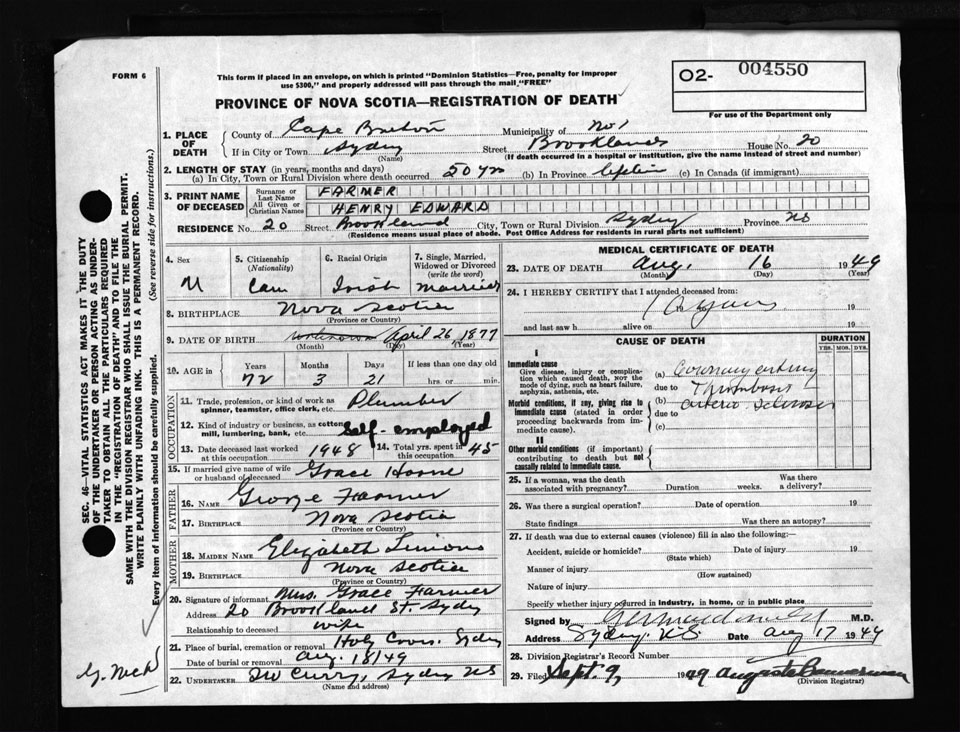 FORM 6
This form if placed in an envelope, on which is printed "Dominion Statistics—Free, penalty for improper
use $300," and properly addressed will pass through the mail "FREE"
O2- 004550
For use of the Department only
PROVINCE OF NOVA SCOTIA—REGISTRATION OF DEATH
1. PLACE OF DEATH
County of Cape Breton Municipality of No 1
If in City or Town Sydney Street Brookland House No. 20
(Name) (If death occurred in a hospital or institution, give the name instead of street and number)
2. LENGTH OF STAY (in years, months and days)
(a) In City, Town or Rural Division where death occurred 50 yrs (b) In Province Lifetime (c) In Canada (if immigrant)
3. PRINT NAME OF DECEASED
Surname or Last Name FARMER
All Given or Christian Names HENRY EDWARD
RESIDENCE No. 20 Street Brookland City, Town or Rural Division Sydney Province NS
(Residence means usual place of abode. Post Office Address for residents in rural parts not sufficient)
4. Sex
M
5. Citizenship
(Nationality)
Can
6. Racial Origin
Irish
7. Single, Married,
Widowed or Divorced
(write the word)
married
8. BIRTHPLACE Nova Scotia
(Province or Country)
9. DATE OF BIRTH unknown April 26, 1877
(Month) (Day) (Year)
10. AGE in
Years Months Days If less than one day old
72 3 21 hrs. or min.
OCCUPATION
11. Trade, profession, or kind of work as
spinner, teamster, office clerk, etc. Plumber
12. Kind of industry or business, as cotton
mill, lumbering, bank, etc. Self-employed
13. Date deceased last worked
at this occupation 1948
14. Total yrs. spent in
this occupation 45
15. If married give name of wife
or husband of deceased Grace Horne
FATHER
16. NAME George Farmer
17. BIRTHPLACE Nova Scotia
(Province or Country)
MOTHER
18. MAIDEN NAME Elizabeth
19. BIRTHPLACE Nova Scotia
(Province or Country)
20. Signature of informant Mrs. Grace Farmer
Address 20 Brookland St. Sydney
Relationship to deceased wife
21. Place of burial, cremation or removal Holy Cross. Sydney
Date of burial or removal Aug. 18/49
22. UNDERTAKER TW Curry, Sydney NS
(Name and address)
MEDICAL CERTIFICATE OF DEATH
23. DATE OF DEATH Aug. 16 1949
(Month) (Day) (Year)
24. I HEREBY CERTIFY that I attended deceased from:
years 19
and last saw h alive on 19
CAUSE OF DEATH
DURATION
YRS. MOS. DYS.
I
Immediate cause
Give disease, injury or complication which caused death, not the mode of dying, such as heart failure, asphyxia, asthenia, etc.
(a) Coronary artery
due to Thrombosis
Morbid conditions, if any, giving rise to immediate cause (stated in order proceeding backwards from immediate cause).
(b) arterio sclerosis
due to
(c)
II
Other morbid conditions (if important) contributing to death but not causally related to immediate cause.
25. If a woman, was the death
associated with pregnancy? Duration weeks. Was there
a delivery?
26. Was there a surgical operation? Date of operation 19
State findings Was there an autopsy?
27. If death was due to external causes (violence) fill in also the following:—
Accident, suicide or homicide? Date of injury 19
(State which)
Manner of injury
(How sustained)
Nature of injury
Specify whether injury occurred in industry, in home, or in public place
Signed by M.D.
Address Sydney. N.S. Date Aug 17 1949
28. Division Registrar's Record Number
29. Filed Sept. 9, 1949
(Division Registrar)
SEC. 46—VITAL STATISTICS ACT MAKES IT THE DUTY
OF THE UNDERTAKER OR PERSON ACTING AS UNDER-
TAKER TO OBTAIN ALL THE PARTICULARS REQUIRED
IN THE "REGISTRATION OF DEATH" AND TO FILE THE
SAME WITH THE DIVISION REGISTRAR WHO SHALL ISSUE THE BURIAL PERMIT.
WRITE PLAINLY WITH UNFADING INK. THIS IS A PERMANENT RECORD.
Every item of information should be carefully supplied. (See reverse side for instructions.)